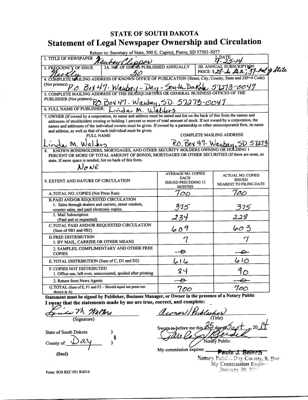 STATE OF SOUTH DAKOTA
Statement of Legal Newspaper Ownership and Circulation
Return to: Secretary of State, 500 E. Capitol, Pierre, SD 57501-5077
1. TITLE OF NEWSPAPER Waubay Clipper 2. DATE 9-25-14
3. FREQUENCY OF ISSUE Weekly 3A. NO. OF ISSUES PUBLISHED ANNUALLY 50 3B. ANNUAL SUBSCRIPTION PRICE
4. COMPLETE MAILING ADDRESS OF KNOWN OFFICE OF PUBLICATION (Street, City, County, State and ZIP+4 Code)
(Not printers) P.O. Box 47 - Waubay - Day - South Dakota 57273-0047
5. COMPLETE MAILING ADDRESS OF THE HEADQUARTERS OR GENERAL BUSINESS OFFICES OF THE
PUBLISHER (Not printer) P.O. Box 47 - Waubay, SD 57273-0047
6. FULL NAME OF PUBLISHER Linda M. Walters
7. OWNER (If owned by a corporation, its name and address must be stated and list on the back of this form the names and
addresses of stockholders owning or holding 1 percent or more of total amount of stock. If not owned by a corporation, the
names and addresses of the individual owners must be given. If owned by a partnership or other unincorporated firm, its name
and address, as well as that of each individual must be given.
FULL NAME COMPLETE MAILING ADDRESS
Linda M. Walters P.O. Box 47 - Waubay, SD 57273
8. KNOWN BONDHOLDERS, MORTGAGEES, AND OTHER SECURITY HOLDERS OWNING OR HOLDING 1
PERCENT OR MORE OF TOTAL AMOUNT OF BONDS, MORTGAGES OR OTHER SECURITIES (If there are none, so
state. If more space is needed, list on back of this form.
None
9. EXTENT AND NATURE OF CIRCULATION AVERAGE NO. COPIES EACH ISSUED PRECEDING 12 MONTHS ACTUAL NO. COPIES ISSUED NEAREST TO FILING DATE
A. TOTAL NO. COPIES (Net Press Run) 700 700
B. PAID AND/OR REQUESTED CIRCULATION
1. Sales through dealers and carriers, street vendors, counter sales, and paid electronic copies. 375 375
2. Mail Subscription (Paid and or requested) 234 228
C. TOTAL PAID AND/OR REQUESTED CIRCULATION (Sum of 9B1 and 9B2) 609 603
D. FREE DISTRIBUTION
1. BY MAIL, CARRIER OR OTHER MEANS 7 7
2. SAMPLES, COMPLIMENTARY AND OTHER FREE COPIES 0 0
E. TOTAL DISTRIBUTION (Sum of C, D1 and D2) 616 610
F. COPIES NOT DISTRIBUTED
1. Office use, left over, unaccounted, spoiled after printing 84 90
2. Return from News Agents 0 0
G. TOTAL (Sum of E, F1 and F2 - Should equal net press run shown in A) 700 700
Statement must be signed by Publisher, Business Manager, or Owner in the presence of a Notary Public
I swear that the statements made by me are true, correct, and complete:
Linda M. Walters Owner/Publisher
(Signature) (Title)
State of South Dakota )
County of Day ) §
Sworn to before me this 26 day of Sept 2014
Notary Public
(Seal)
My commission expires: Paula J. Beineck
Notary Public - Day County, S. Dak
My Commission Expires
January 30,
Form: SOS REC 051 9/2014